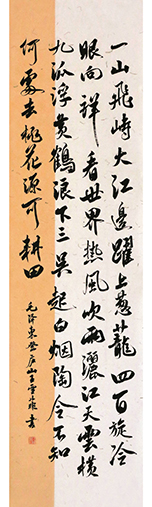 一山飛峙大江邊躍上葱蘢四百旋冷
眼向洋看世界熱風吹雨灑江天雲橫
九派浮黃鶴浪下三吳起白烟陶令不知
何處去桃花源可耕田
毛澤東登庐山王書